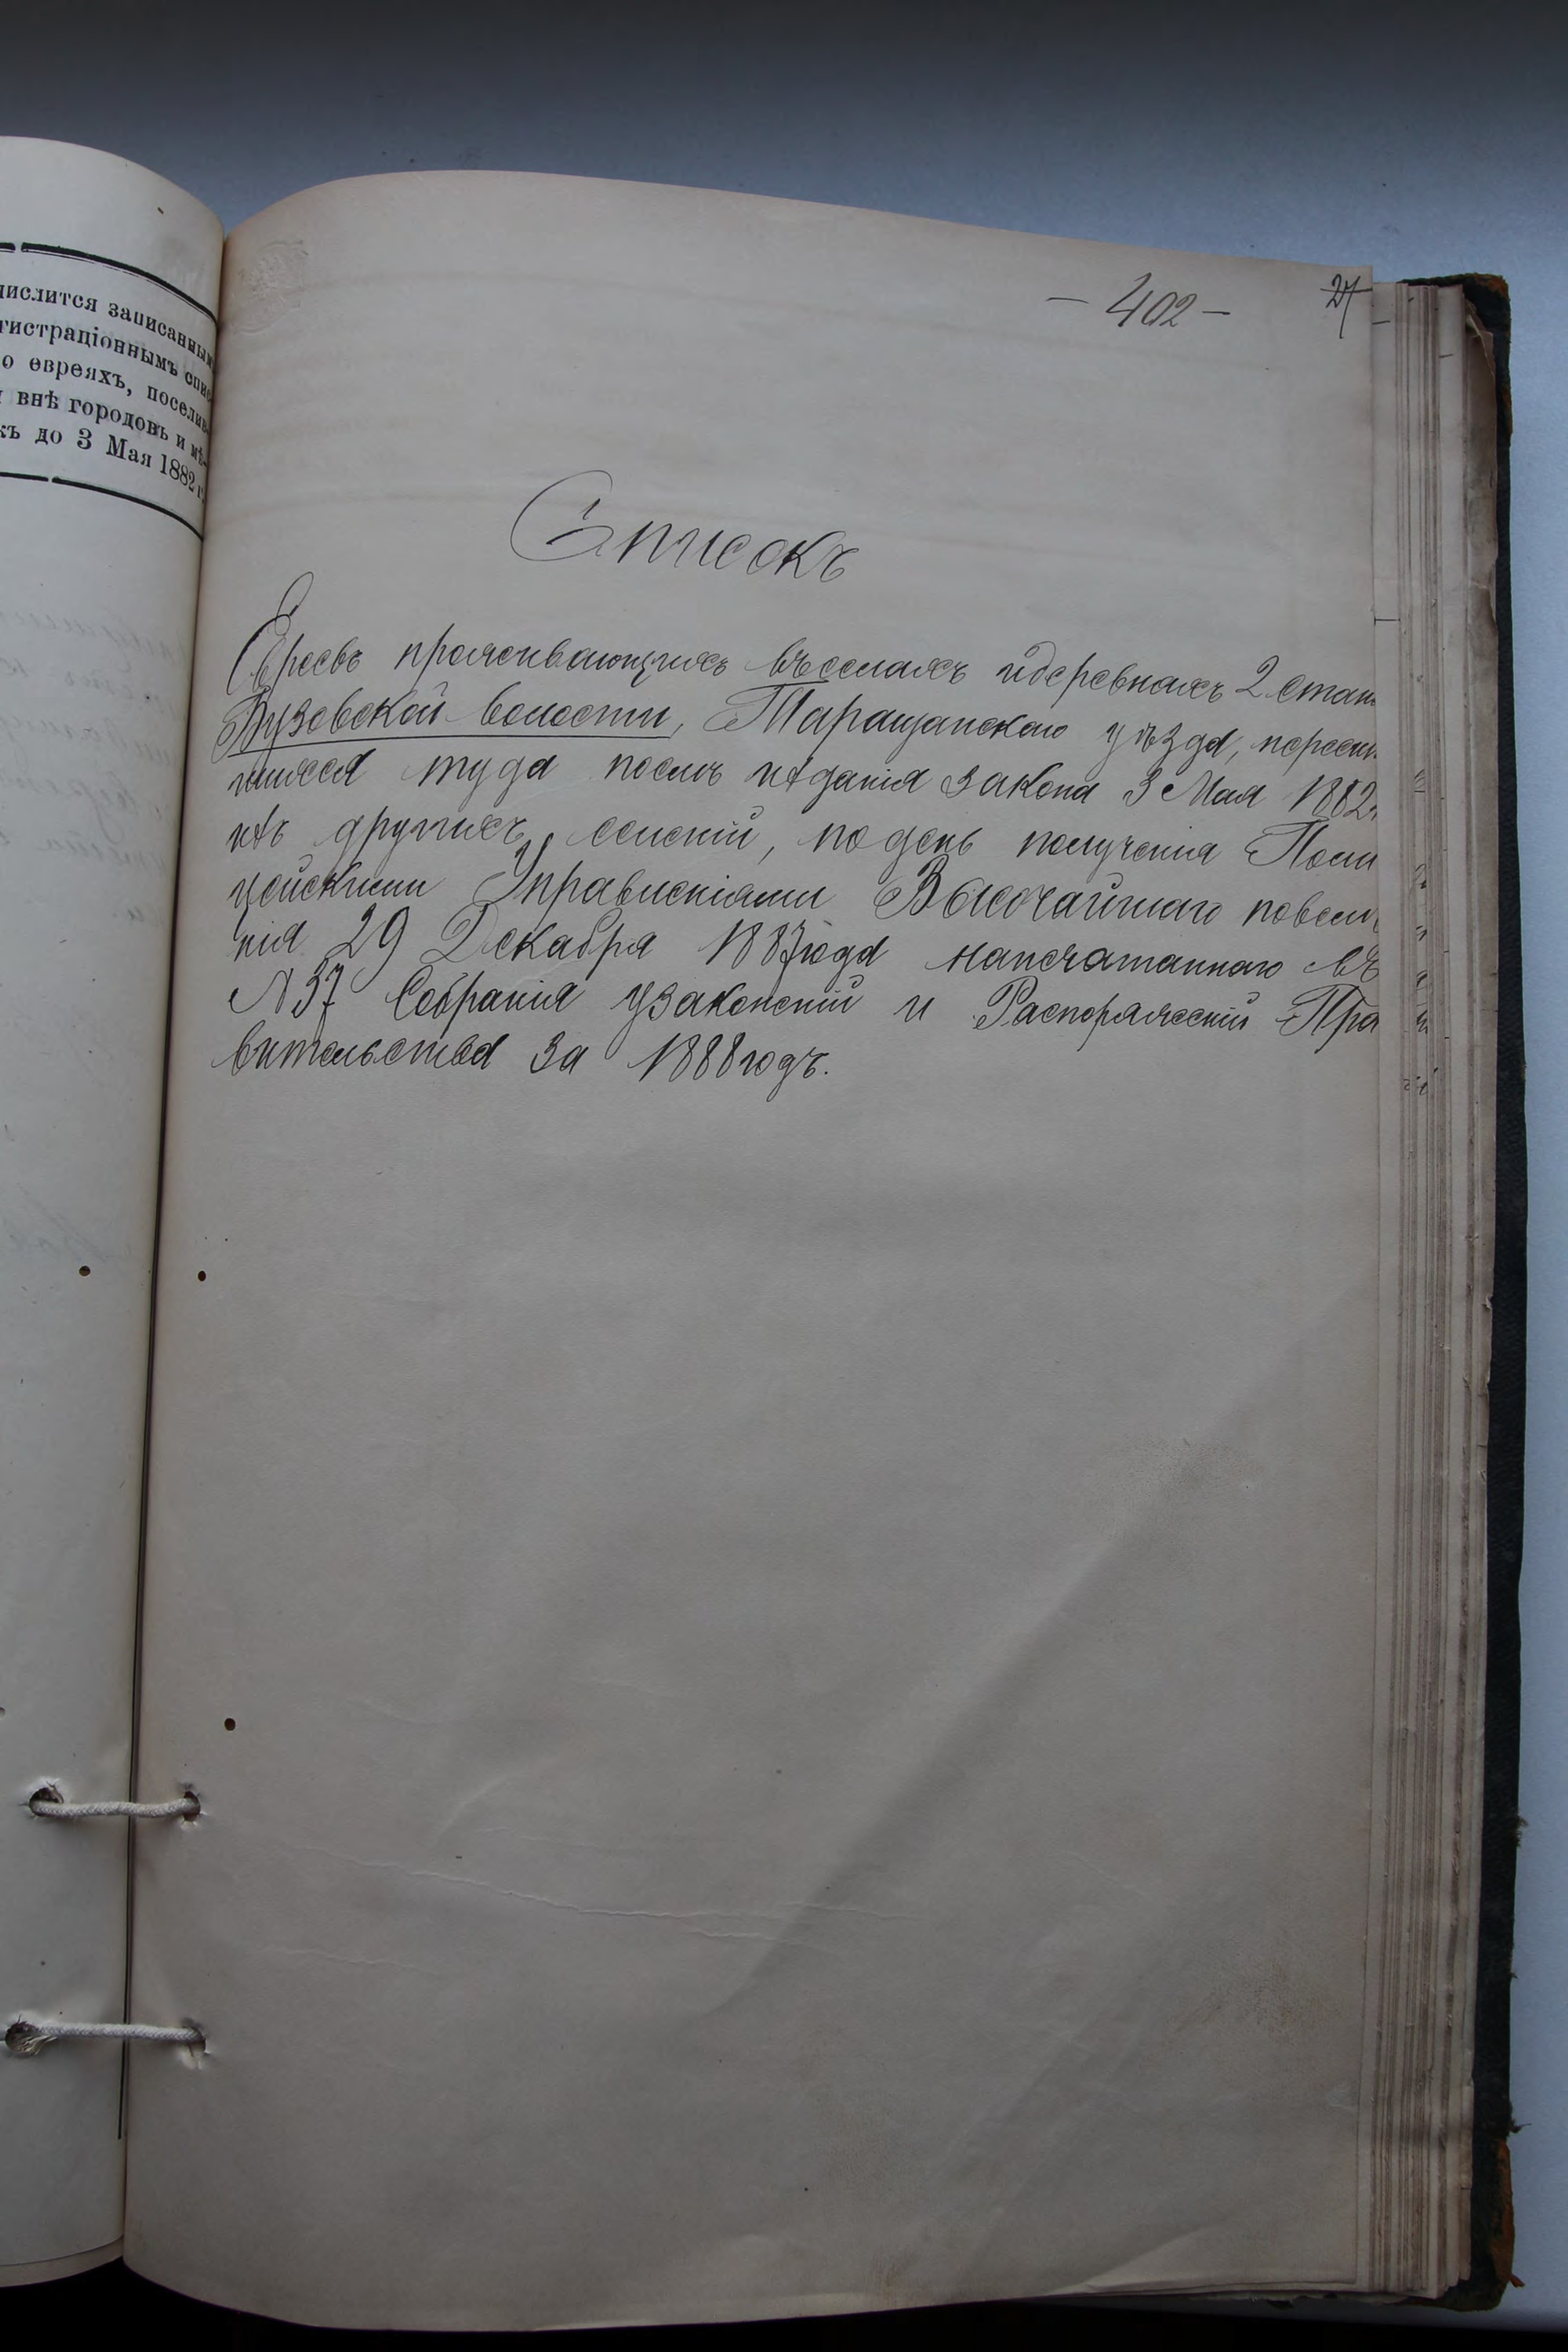 числится записанным
гистраціоннымъ спис
о евреяхъ, поселив-
внѣ городовъ и мѣ-
къ до 3 Мая 1882 г.
— 402 —
Списокъ
Евреевъ проживающихъ въ селахъ и деревнях 2 стан
Бузовской волости, Таращанскаго уѣзда, пересел
шихся туда послѣ изданія закона 3 Мая 1882 г
изъ другихъ селеній, по день полученія Поли
цейскими Управленіями Высочайшаго повелѣ
нія 29 Декабря 1887 года напечатаннаго въ
№ 37 Собранія узаконеній и Распоряженій Пра
вительства за 1888 годъ.